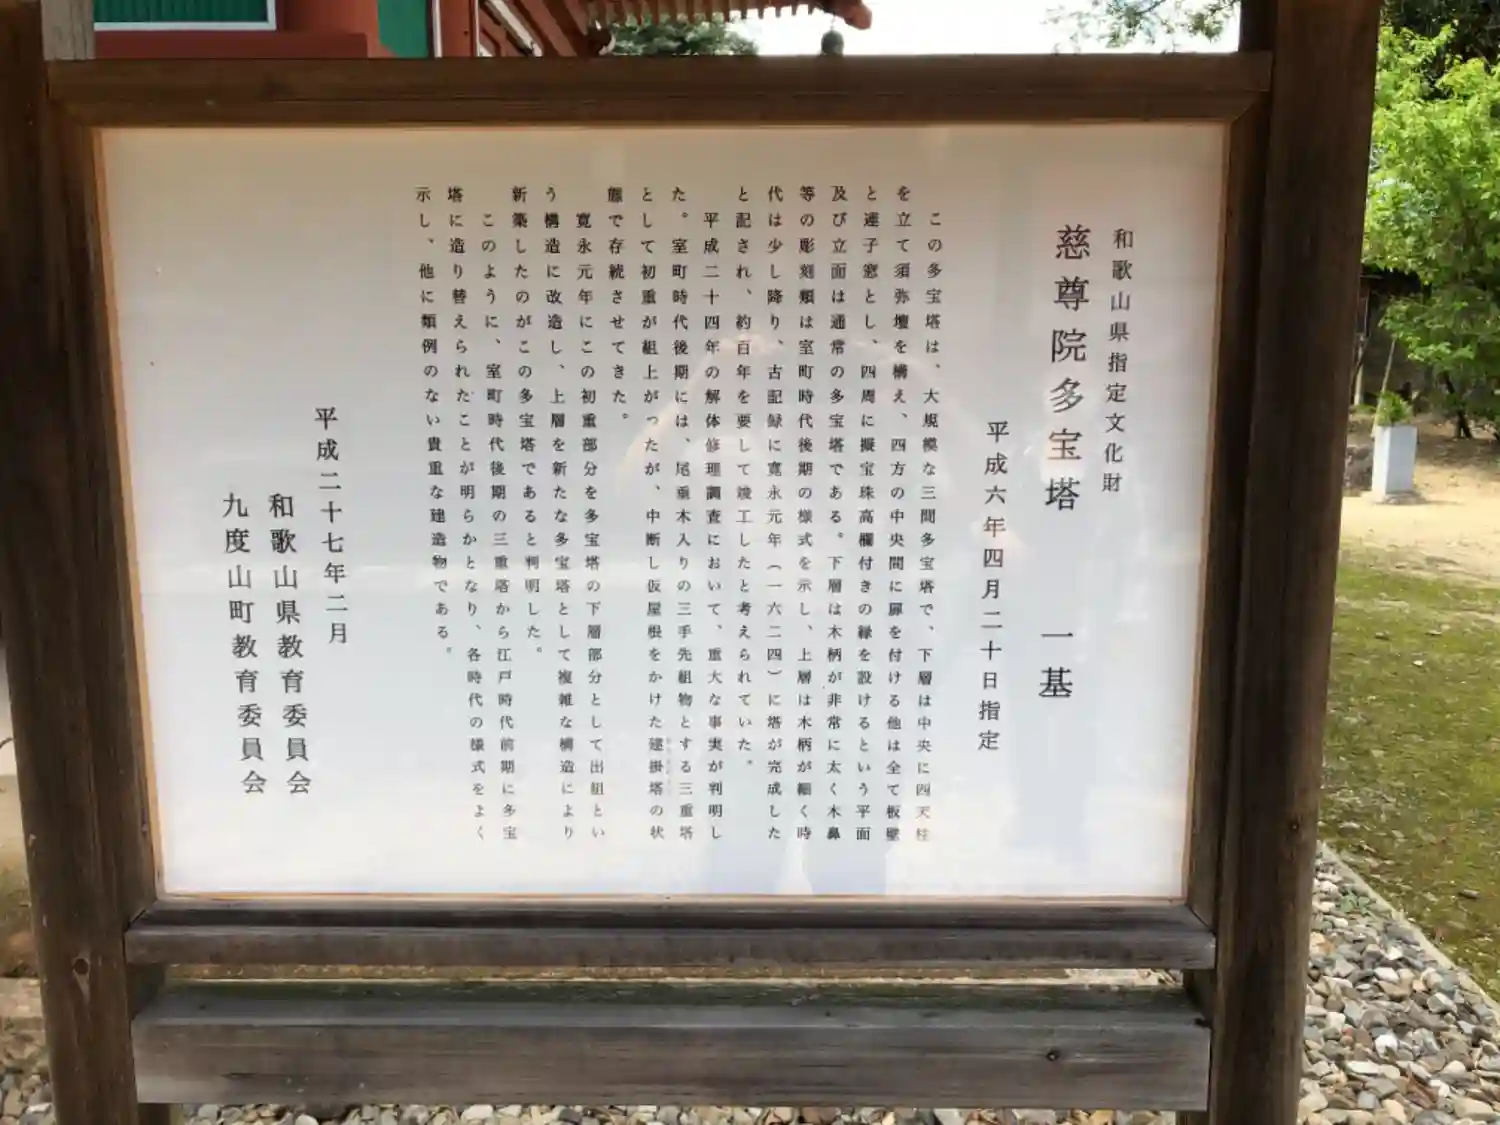 和歌山県指定文化財
慈尊院多宝塔 一基
平成六年四月二十日指定
この多宝塔は、大規模な三間多宝塔で、下層は中央に四天柱
を立て須弥壇を構え、四方の中央間に扉を付ける他は全て板壁
と連子窓とし、四周に擬宝珠高欄付きの縁を設けるという平面
及び立面は通常の多宝塔である。下層は木柄が非常に太く木鼻
等の彫刻類は室町時代後期の様式を示し、上層は木柄が細く時
代は少し降り、古記録に寛永元年（一六二四）に塔が完成した
と記され、約百年を要して竣工したと考えられていた。
平成二十四年の解体修理調査において、重大な事実が判明し
た。室町時代後期には、尾垂木入りの三手先組物とする三重塔
として初重が組上がったが、中断し仮屋根をかけた建掛塔の状
態で存続させてきた。
寛永元年にこの初重部分を多宝塔の下層部分として出組とい
う構造に改造し、上層を新たな多宝塔として複雑な構造により
新築したのがこの多宝塔であると判明した。
このように、室町時代後期の三重塔から江戸時代前期に多宝
塔に造り替えられたことが明らかとなり、各時代の様式をよく
示し、他に類例のない貴重な建造物である。
平成二十七年二月
和歌山県教育委員会
九度山町教育委員会